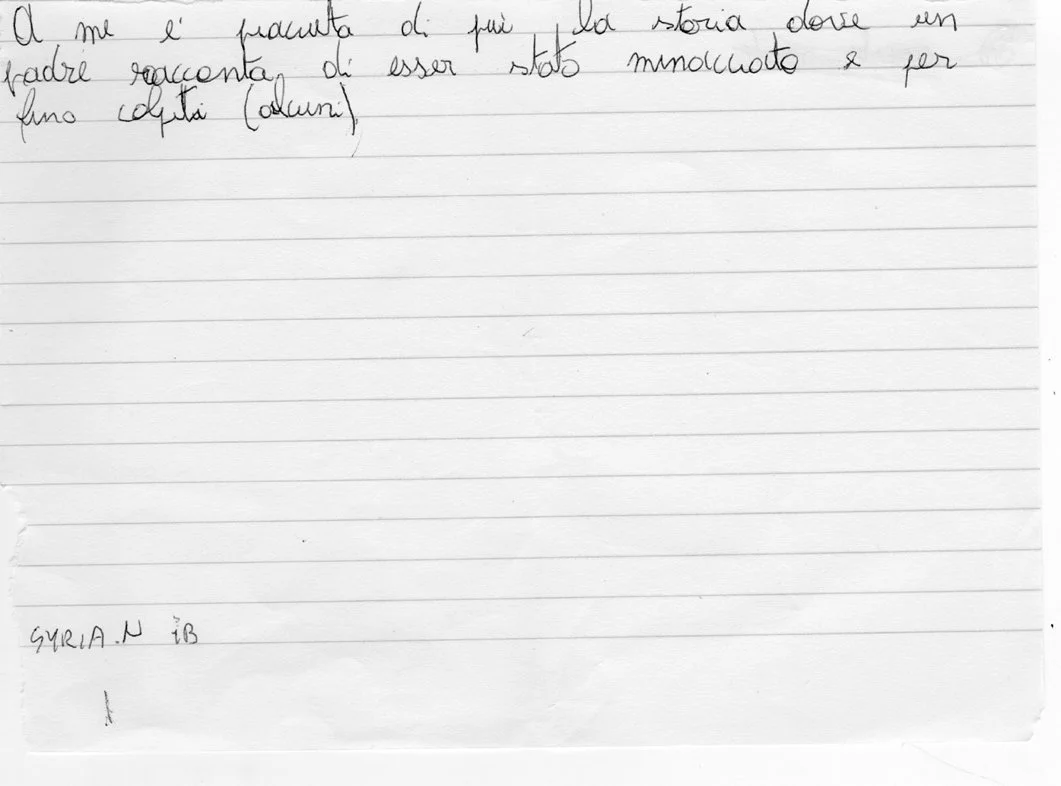 A me e' piaciuta di più, la storia dove un
padre racconta, di esser stato minacciato e per
fino colpiti (alcuni),
SYRIA.N iB